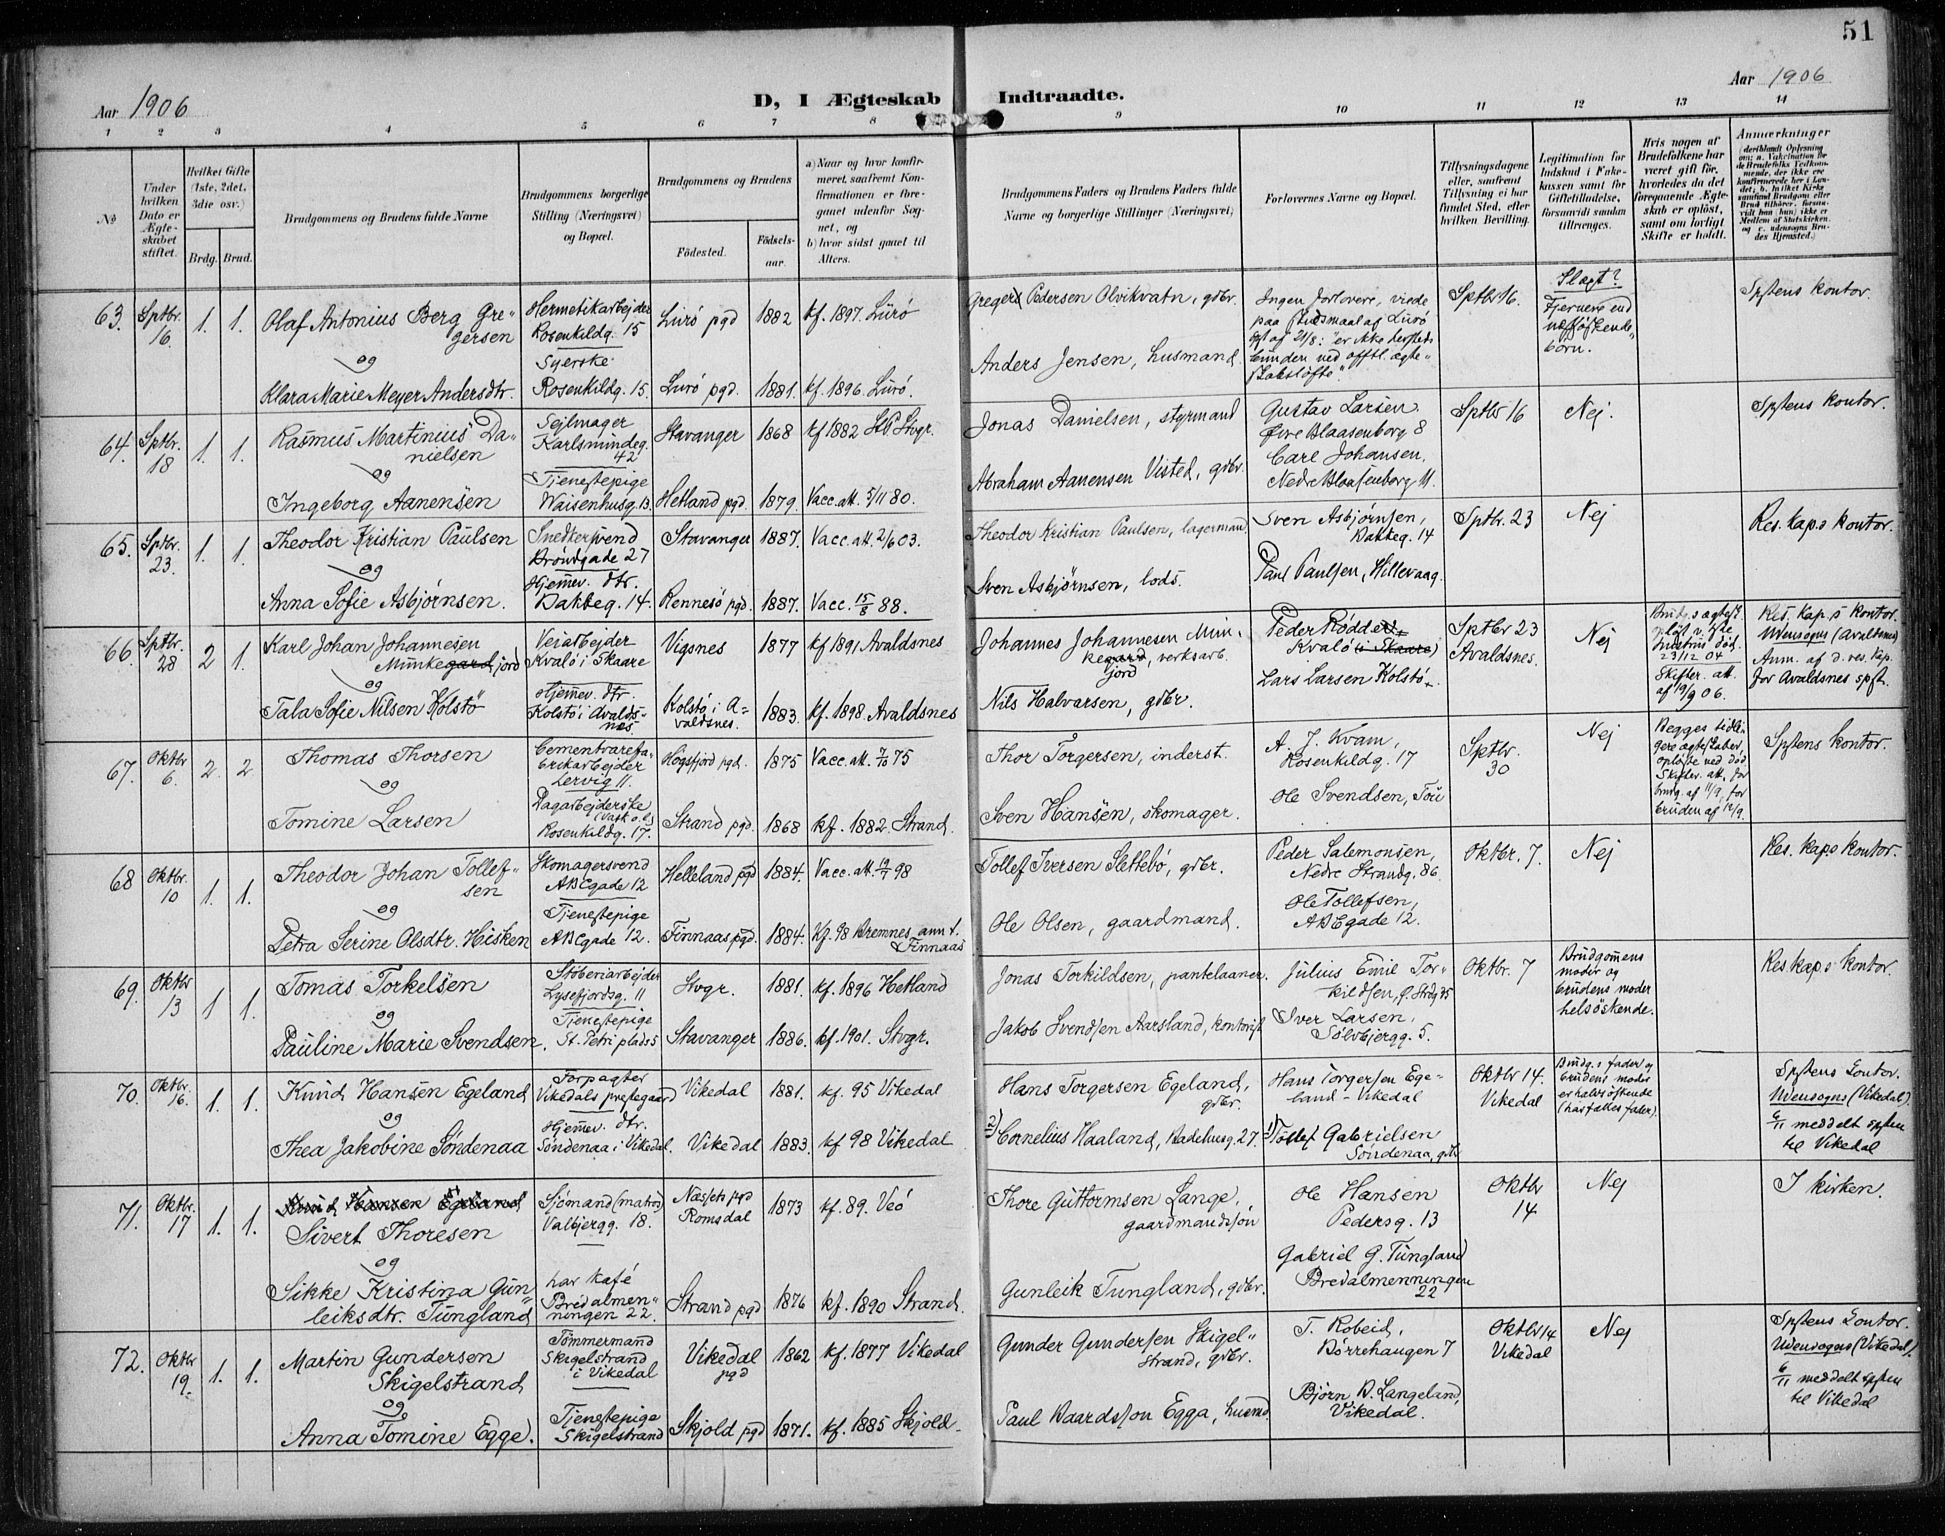 51
Aar 1906
D, I Ægteskab Indtraadte.
Aar 1906
1 2 3 4 5 6 7 8 9 10 11 12 13 14
No
Under hvilken Dato er Ægteskabet stiftet.
Hvilket Gifte (1ste, 2det, 3die osv.)
Brdg. Brud.
Brudgommens og Brudens fulde Navne
Brudgommens borgerlige Stilling (Næringsvei) og Bopæl.
Brudgommens og Brudens
Födested.
Födsels-aar.
a) Naar og hvor konfirmeret, saafremt Konfirmationen er foregaaet udenfor Sognet, og
b) hvor sidst gaaet til Alters.
Brudgommens Faders og Brudens Faders fulde Navne og borgerlige Stillinger (Næringsvei)
Forlovernes Navne og Bopæl.
Tillysningsdagene eller, saafremt Tillysning ei har fundet Sted, efter hvilken Bevilling.
Legitimation for Indskud i Enkekassen samt for Giftetilladelse, forsaavidt saadan tiltrænges.
Hvis nogen af Brudefolkene har været gift för, hvorledes da det foregaaende Ægteskab er oplöst, samt om lovligt Skifte er holdt.
Anmærkninger
63. Sptbr. 16 1. 1.
Olaf Antonius Berg Gregersen
og
Klara Marie Meyer Andersdtr.
Hermetikarbejder
Rosenkildg. 15
Syerske
Rosenkildg. 15.
Lurö pgd 1882 kf. 1897. Lurö
Lurö pgd. 1881. kf. 1896. Lurö.
Gregers Pedersen Olvikvatn, gdbr.
Anders Jensen, husmand
Ingen forlovere, viede
paa skudsmaal af Lurö
spt af 21/8: "er ikke hersteds
bunden ved offtl. ægte-
skabsløfte".
Sptbr 16.
Slægt?
Fjernere end
næstsøskende-
börn.
Spstens kontor.
64. Sptbr. 18 1. 1.
Rasmus Martinius Danielsen
og
Ingeborg Aanensen
Sejlmager
Karlsmindeg. 42
Tjenestepige
Waisenhusg. 13.
Stavanger 1868 kf 1882 St P Stvgr.
Hetland pgd. 1879. Vacc. att. 5/11 80.
Jonas Danielsen, styrmand
Abraham Aanensen Visted, gdbr.
Gustav Larsen
Øvre Blaasenborg 8
Carl Johansen,
Nedre Blaasenborg 11.
Sptbr 16 Nej.
Spstens kontor.
65. Sptbr. 23. 1. 1.
Theodor Kristian Paulsen
og
Anna Sofie Asbjørnsen.
Snedkersvend
Bröndgade 27
Hjemmev. dtr.
Bakkeg. 14.
Stavanger 1887. Vacc. att. 2/6 03.
Rennesö pgd. 1887. Vacc. 15/8 88.
Theodor Kristian Paulsen, lagermand
Sven Asbjørnsen, lods.
Sven Asbjørnsen,
Bakkeg. 14
Paul Paulsen, Hillevaag.
Sptbr. 23 Nej
Res. kap.s kontor.
66. Sptbr. 28 2 1.
Karl Johan Johannesen
Munkegard jord
og
Tala Sofie Nilsen Kolstö
Veiarbejder
Kvalö i Skaare
Hjemmev. dtr.
Kolstö i Avaldsnæs
Vigsnes 1877 kf 1891 Avaldsnes
Kolstö i Avaldsnes. 1883. kf. 1898. Avaldsnes
Johannes Johannesen Munkegard jord, verksarb.
Nils Halvarsen, gdbr.
Peder Rødda
Kvalö (i Skaare)
Lars Larsen Kolstö
Sptbr 23
Avaldsnes.
Nej
Brudg.s ægtesk.
oplöst v. 1ste
hustrus död
23/12 04
Skifter. att.
af 19/9 06.
Res. kap.s kontor
Udensogns (Avaldsnes)
Anm. af d. res. kap.
for Avaldsnes spst.
67. Oktbr 6. 2. 2
Thomas Thorsen
og
Tomine Larsen
Cementvarefabrikarbejder
Lervig 11.
Dagarbejderske
(vask o. l.)
Rosenkildg. 17.
Högsfjord pgd. 1875 Vacc. att. 7/10 75
Strand pgd. 1868 kf. 1882 Strand.
Thor Torgersen, inderst.
Sven Hansen, skomager.
A. J. Kvam,
Rosenkildg. 17
Ole Svendsen, Tou
Sptbr. 30
Nej
Begges tidligere ægteskaber
oplöste ved död
Skifter. att. for
brudg. af 11/9, for
bruden af 12/9.
Spstens kontor.
68 Oktbr. 10 1. 1.
Theodor Johan Tollefsen
og
Petra Serine Olsdtr. Hisken
Skomagersvend
ABCgade 12
Tjenestepige
ABCgade 12.
Helleland pgd 1884. Vacc. att. 98
Finnaas pgd. 1884. Kf. 98 Bremnes, ann. t. Finnaas
Tollef Iversen Slettebö, gdbr.
Ole Olsen, gaardmand.
Peder Salemonsen,
Nedre Strandg. 86.
Ole Tollefsen,
ABCgade 12.
Oktbr. 7. Nej
Res. kap.s kontor.
69. Oktbr 13 1 1.
Tomas Torkelsen
og
Pauline Marie Svendsen.
Støberiarbejder
Lysefjordsg. 11
Tjenestepige
St. Petri plads 5
Stvgr. 1881. kf. 1896 Hetland
Stavanger 1886. kf. 1901. Stvgr.
Jonas Torkildsen, pantelaaner.
Jakob Svendsen Aarsland, kontorist
Julius Emil Torkildsen,
Iver Larsen,
Sölvbjergg. 5.
Oktbr. 7
Brudgommens
moder og
brudens moder
helsöskende.
Res. kap.s kontor.
70. Oktbr. 16. 1. 1.
Knud Hansen Egeland
og
Thea Jakobine Söndenaa
Forpagter
Vikedals prestegaard
Hjemmev. dtr.
Söndenaa i Vikedal.
Vikedal 1881. kf. 95 Vikedal
Vikedal 1883. kf 98 Vikedal
Hans Torgersen Egeland,
gdbr.
2) Cornelius Haaland, Badehusg. 27.
Hans Torgersen Egeland - Vikedal
1) Tollef Gabrielsen
Söndenaa, gdbr
Oktbr 14.
Vikedal
Brudg.s fader og
brudens moder
er halvsöskende
(har fælles fader).
Spstens kontor.
Udensogns (Vikedal)
6/11 meddelt spsten
til Vikedal
71. Oktbr. 17 1. 1.
Knud Hansen Egeland
Sivert Thoresen
og
Sikke Kristina Gunleiksdtr. Tungland
Sjömand (matros)
Valbjergg. 18.
har kafé
Bredalmenningen 22.
Næssets pgd
Romsdal 1873 kf. 89. Veö
Strand pgd 1876 kf. 1890 Strand.
Thore Guttormsen Lange,
gaardmandssön
Gunleik Tungland, gdbr.
Ole Hansen
Pedersg. 13
Gabriel G. Tungland
Bredalmenningen
22
Oktbr
14
Nej
I kirken.
72. Oktbr 19. 1. 1.
Martin Gundersen
Skigelstrand
og
Anna Tomine Egge.
Tömmermand
Skigelstrand
i Vikedal
Tjenestepige
Skigelstrand
Vikedal pgd 1862 kf. 1877 Vikedal
Skjold pgd 1871. kf. 1885 Skjold.
Gunder Gundersen Skigelstrand, gdbr.
Paul Baardsson Egga, husmd
T. Robeid,
Börrehaugen 7
Björn B. Langeland,
Vikedal.
Oktbr 14
Vikedal
Nej
Spstens kontor.
Udensogns (Vikedal).
6/11 meddelt spsten
til Vikedal